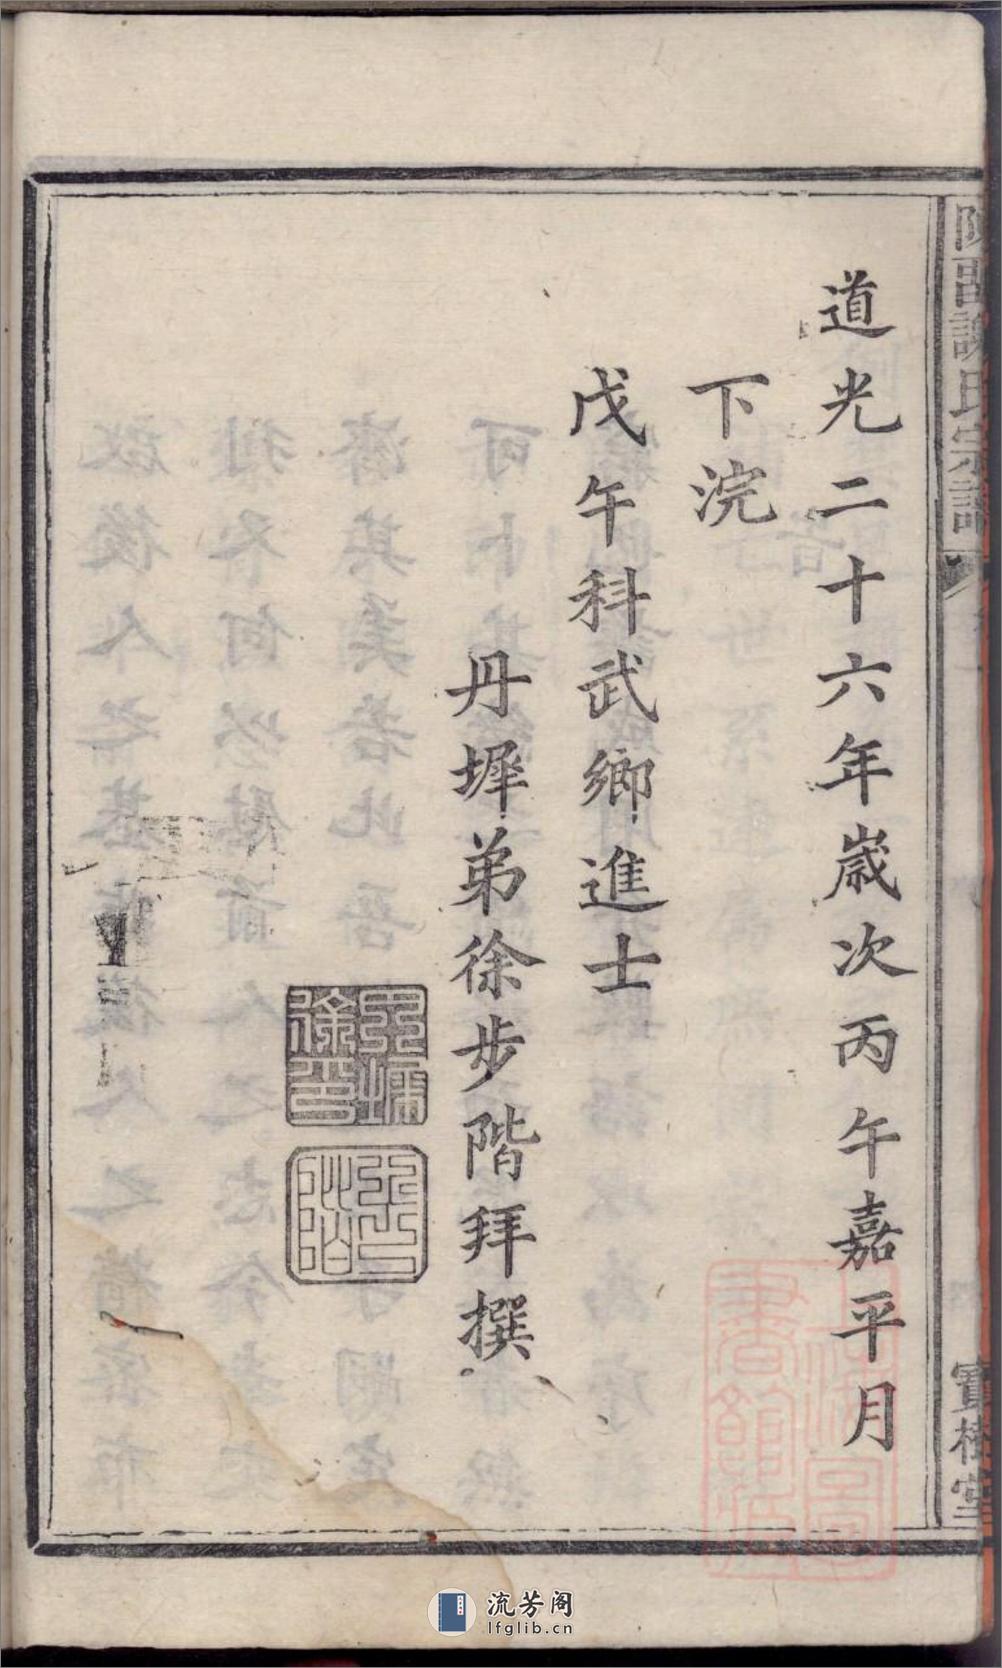 道光二十六年歲次丙午嘉平月
下浣
戊午科武鄉進士
丹墀弟徐步階拜撰
氏宗譜
寶樹堂
流芳阁
lfglib.cn